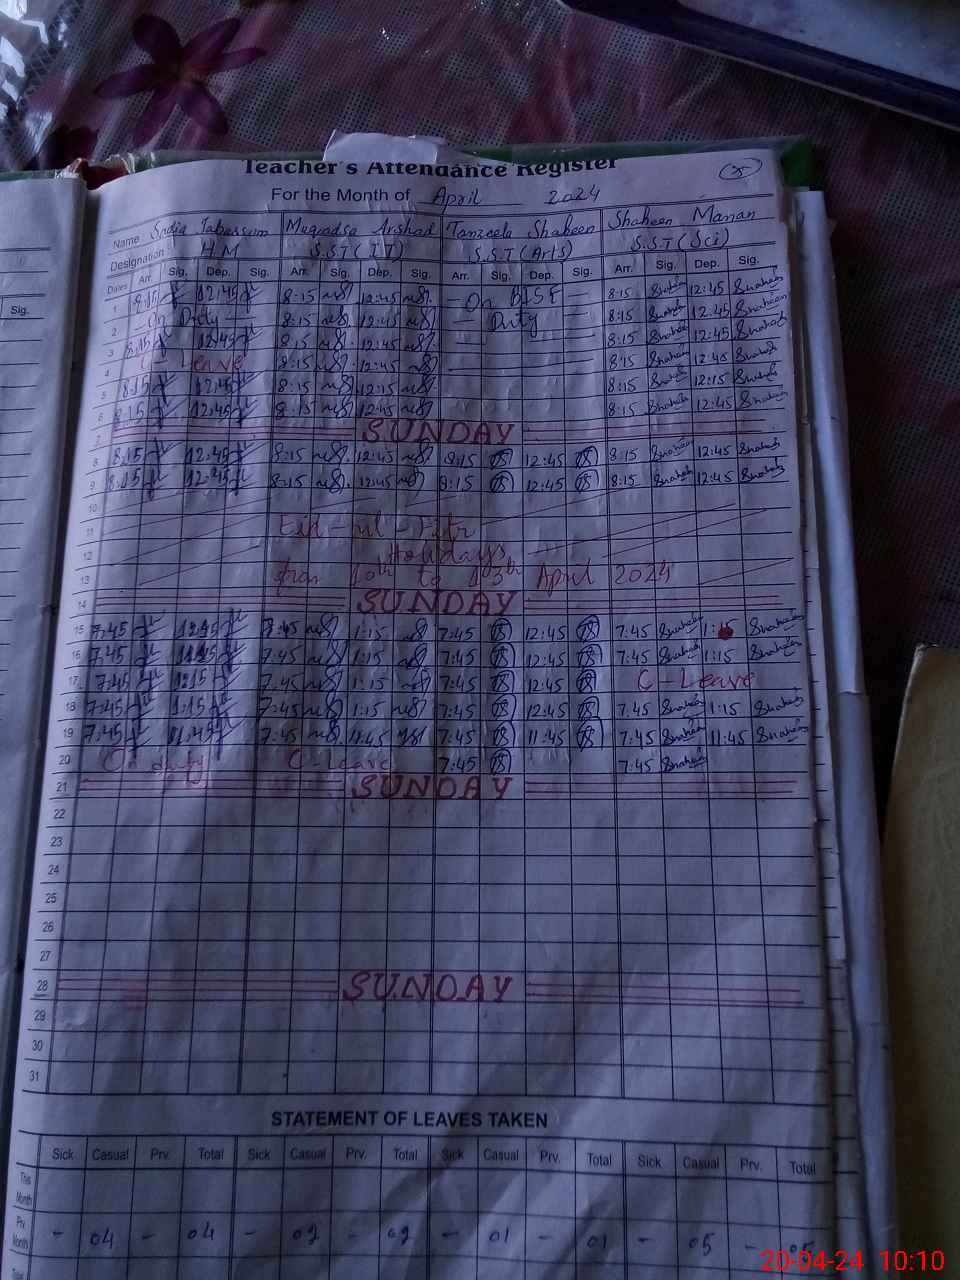 Sig.
Teacher's Attendance Register
For the Month of April 2024
Name Sadia Tabassum Muqadsa Arshad Tanzeela Shaheen Shaheen Manan
Designation H.M S.S.T (IT) S.S.T (Arts) S.S.T (Sci)
Dates Arr. Sig. Dep. Sig. Arr. Sig. Dep. Sig. Arr. Sig. Dep. Sig. Arr. Sig. Dep. Sig.
1 8:15 12:45 8:15 12:45 - On BISE - 8:15 12:45 Shaheen
2 - On Duty - 8:15 12:45 - Duty 8:15 12:45 Shaheen
3 8:15 12:45 8:15 12:45 8:15 Shaheen 12:45 Shaheen
4 C - Leave 8:15 12:45 8:15 Shaheen 12:45 Shaheen
5 8:15 12:45 8:15 12:15 8:15 12:15 Shaheen
6 8:15 12:45 8:15 12:45 8:15 Shaheen 12:45 Shaheen
7 SUNDAY
8 8:15 12:45 8:15 12:45 8:15 TS 12:45 TS 8:15 Shaheen 12:45 Shaheen
9 8:15 12:45 8:15 12:45 8:15 TS 12:45 TS 8:15 Shaheen 12:45 Shaheen
10
11 Eid-ul-Fitr
12 Holidays
13 from 10th to 13th April 2024
14 SUNDAY
15 7:45 7:45 1:15 7:45 TS 12:45 TS 7:45 Shaheen 1:15 Shaheen
16 7:45 7:45 1:15 7:45 TS 12:45 TS 7:45 Shaheen 1:15 Shaheen
17 7:45 7:45 1:15 7:45 TS 12:45 TS C - Leave
18 7:45 1:15 7:45 1:15 7:45 TS 12:45 TS 7:45 Shaheen 1:15 Shaheen
19 7:45 11:45 7:45 11:45 7:45 TS 11:45 TS 7:45 Shaheen 11:45 Shaheen
20 On duty C - Leave 7:45 TS 7:45 Shaheen
21 SUNDAY
22
23
24
25
26
27
28 SUNDAY
29
30
31
STATEMENT OF LEAVES TAKEN
Sick Casual Prv. Total Sick Casual Prv. Total Sick Casual Prv. Total Sick Casual Prv. Total
This Month
Prv. Month - 04 - 04 - 02 - 02 - 01 - 01 - 05 - 05
Total
20-04-24 10:10